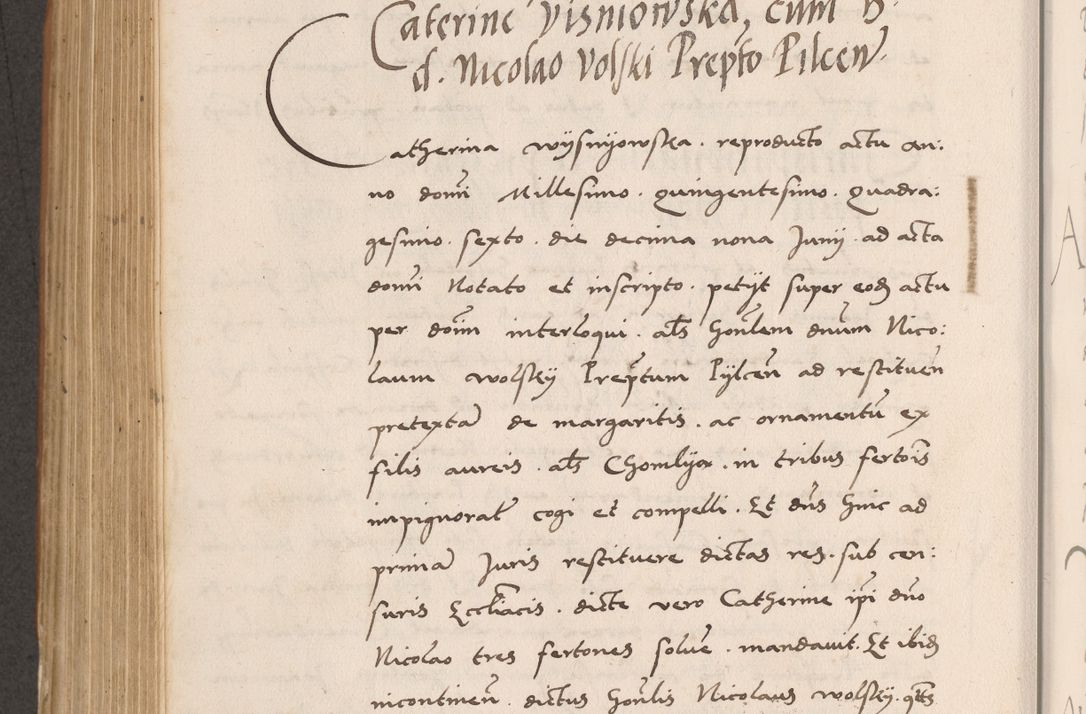 Caterine Visniowska, cum h.
d. Nicolao Volski Prepto Pilcen.
Catherina wysnyowska . reproducto actu an:
no domi Millesimo . quingentesimo . quadra:
gesimo . sexto . die decima nona Junij . ad acta
domi Notato et inscripto . petijt super eod actu
per doim interloqui . als honlem dnum Nico:
laum wolsky Preptum Pylcen ad restituen
pretexta de margaritis . ac ornamentu ex
filis aureis . als Chomlya . in tribus fertois
impignorat cogi et compelli . Et dns hinc ad
prima Juris restituere dictas res . sub cen:
suris Eccliacis . dicte vero Catherine ipi dno
Nicolao tres fertones solue . mandauit . Et ibid
incontinen dictus honlis Nicolaus wolsky . qtts